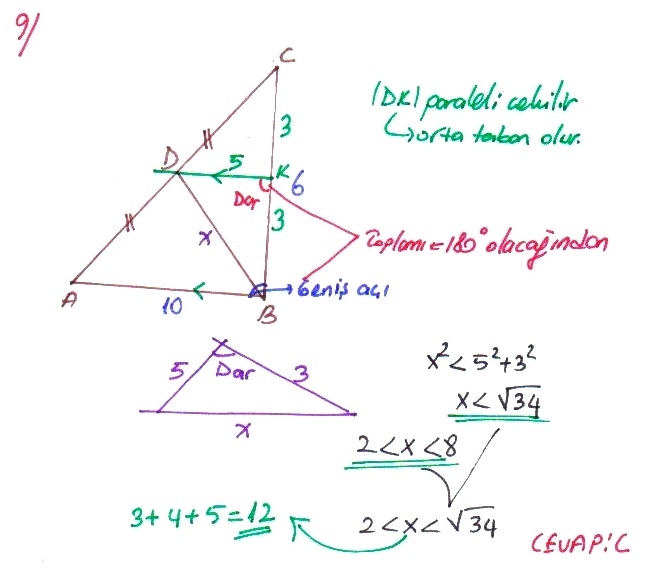 9/
C
|DK| paraleli çekilir
↳ orta taban olur.
3
D
5
K
6
Dar
3
x
Toplamı = 180° olacağından
A
10
B
Geniş açı
5
Dar
3
x
x² < 5² + 3²
x < √34
2 < x < 8
3 + 4 + 5 = 12
2 < x < √34
CEVAP: C